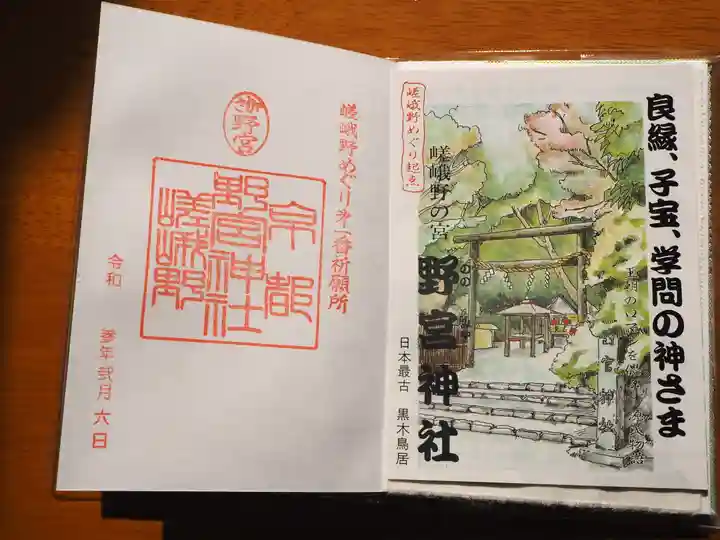 嵯峨野めぐり第一番祈願所
野宮
京都
野宮神社
嵯峨野
令和 参年弐月六日
良縁、子宝、学問の神さま
嵯峨野めぐり起点
嵯峨野の宮
野宮神社
のの
日本最古 黒木鳥居